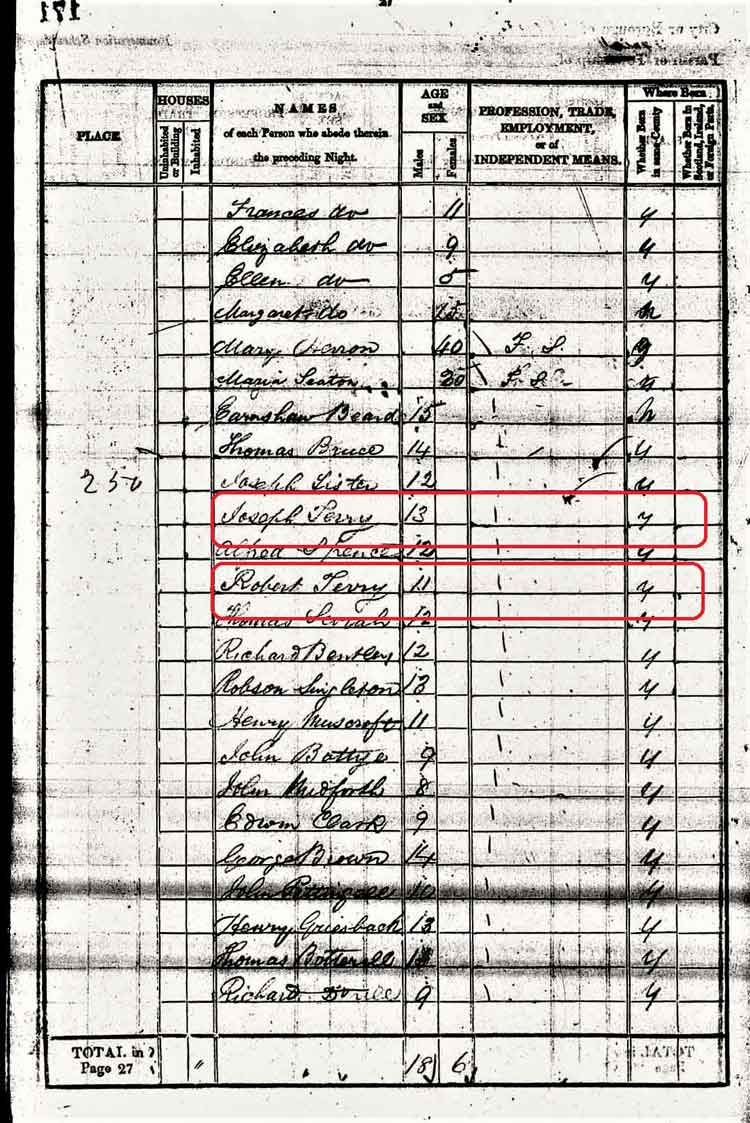 171
City or Borough of
Parish or Township of
PLACE
HOUSES
Uninhabited or Building
Inhabited
NAMES
of each Person who abode therein
the preceding Night.
AGE
and
SEX
Males
Females
PROFESSION, TRADE,
EMPLOYMENT,
or of
INDEPENDENT MEANS.
Where Born
Whether Born in same County
Whether Born in Scotland, Ireland, or Foreign Parts.
Frances do 11 y
Elizabeth do 9 y
Ellen do 5 y
Margaret do 15 n
Mary 40 F. S.
Maria Seaton 20 F. S. n
Earnshaw Beard 15 n
Thomas Bruce 14 y
250 Joseph Lister 12 y
Joseph Terry 13 y
Alfred Spence 12 y
Robert Terry 11 y
Thomas 12 y
Richard Bentley 12 y
Robson Singleton 13 y
Henry Muscroft 11 y
John 9 y
John Midforth 8 y
Edwin Clark 9 y
George Brown 14 y
John 10 y
Henry Griesbach 13 y
Thomas Botterill y
Richard 9 y
TOTAL in
Page 27 " 18 6